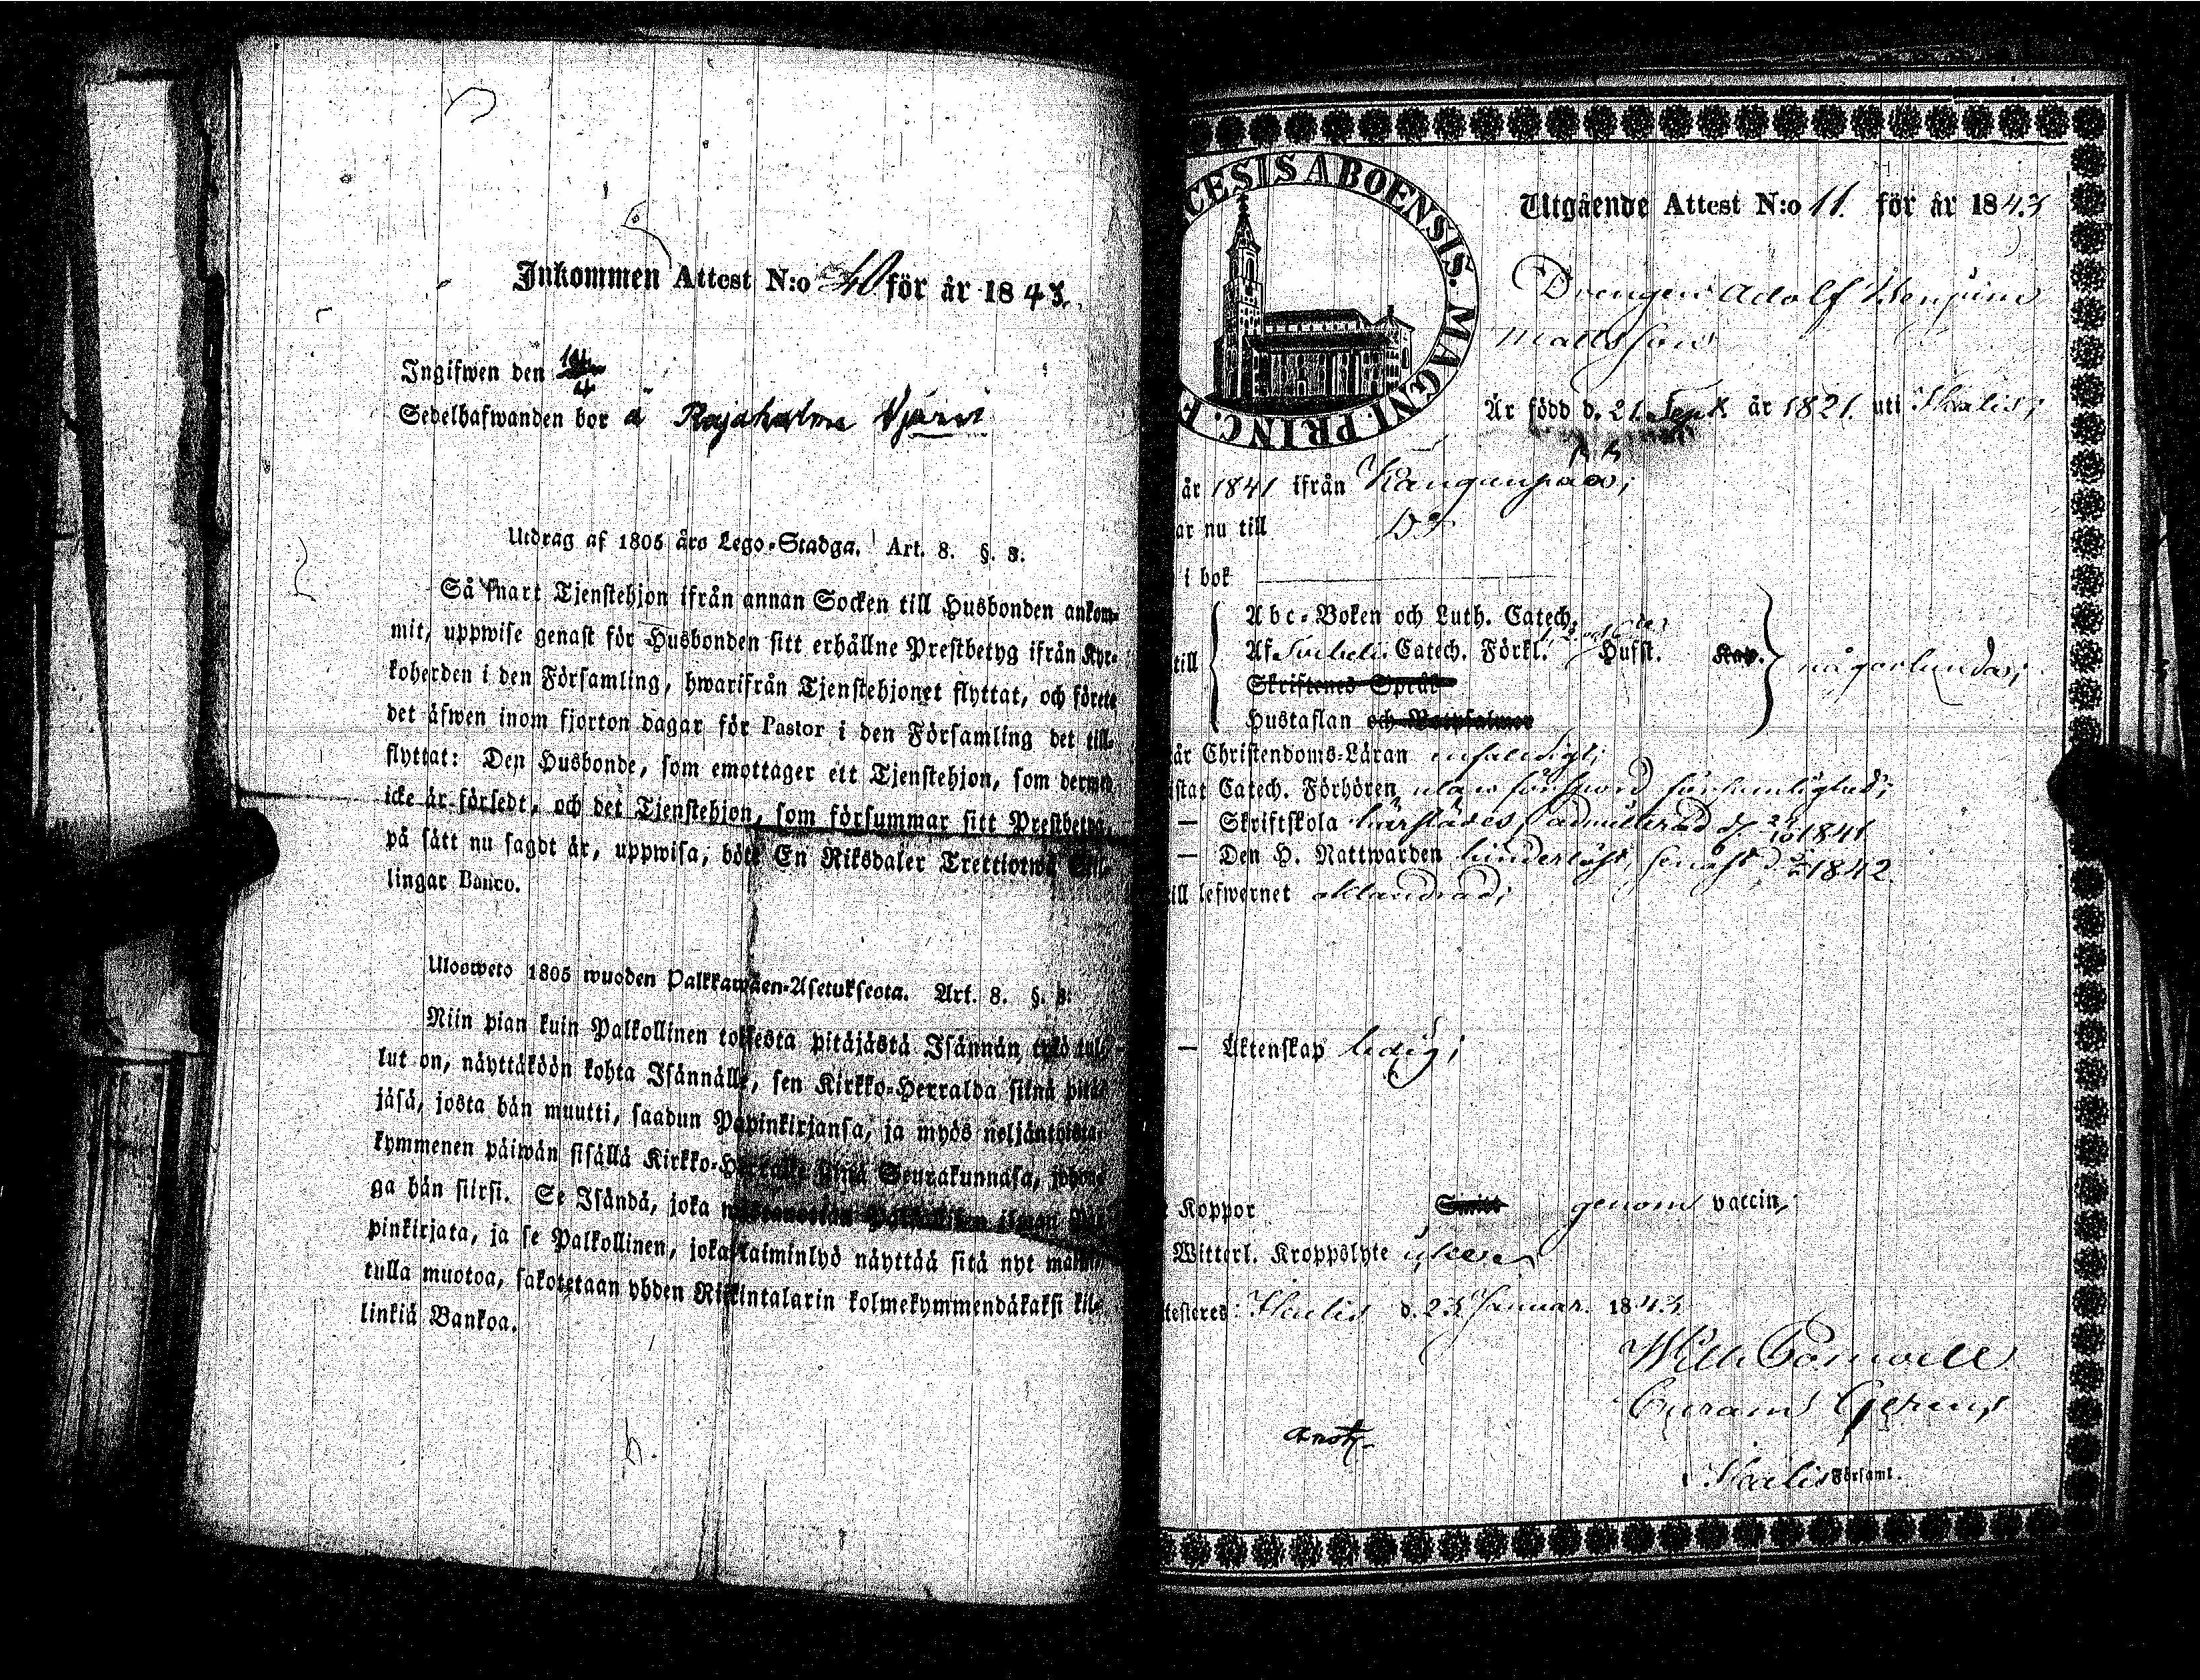 Inkommen Attest N:o 40 för år 1843.
Ingifwen den
Sedelhafwanden bor å Rajaholma
Utdrag af 1805 års Lego-Stadga. Art. 8. §. 3.
Så snart Tjenstehjon ifrån annan Socken till Husbonden ankom-
mit, uppwise genast för Husbonden sitt erhållne Prestbetyg ifrån Kyr-
koherden i den Församling, hwarifrån Tjenstehjonet flyttat, och förete
det äfwen inom fjorton dagar för Pastor i den Församling det till-
flyttat: Den Husbonde, som emottager ett Tjenstehjon, som dermed
icke är försedt, och det Tjenstehjon, som försummar sitt Prestbetyg,
på sätt nu sagdt är, uppwisa, böte En Riksdaler Trettiotwå Skil-
lingar Banco.
Ulosweto 1805 wuoden Palkkawäen-Asetuksesta. Art. 8. §. 3.
Niin pian kuin Palkollinen toisesta pitäjästä Isännän tykö tul-
lut on, näyttäköön kohta Isännälle, sen Kirkko-Herralda siinä pitä-
jäsä, josta hän muutti, saadun Papinkirjansa, ja myös neljäntoista-
kymmenen päiwän sisällä Kirkko-Herralle siinä Seurakunnasa, johon-
ga hän siirsi. Se Isändä, joka ilman Pa-
pinkirjata, ja se Palkollinen, joka laiminlyö näyttää sitä nyt mainit-
tulla muotoa, sakotetaan yhden Riikintalarin kolmekymmendäkaksi kil-
linkiä Bankoa.
CESIS ABOENSIS. MAGNI. PRINC. F
Utgående Attest N:o 11. för år 1843
Drengen Adolf
Mattsson
Är född d. 21 Sept. år 1821. uti Ikalis;
år 1841 ifrån Kangunpää;
ar nu till D:o
i bok
till
Abc-Boken och Luth. Catech.
Af Svebelii Catech. Förkl. Hufst. Kap. någorlunda;
Skriftenes Språk
Hustaflan och Botpsalmer
är Christendoms-Läran enfaldigt;
istat Catech. Förhören utan försport försumlighet;
— Skriftskola härstädes, admitterad d. 1841
— Den H. Nattwarden senast d. 1842.
ill lefwernet oklandrad;
— Äktenskap ledig;
Koppor Smitto genom vaccin;
Witterl. Kroppslyte
testeres: Ikalis d. 23 Januar. 1843
Wilh.
Ikalis Församl.